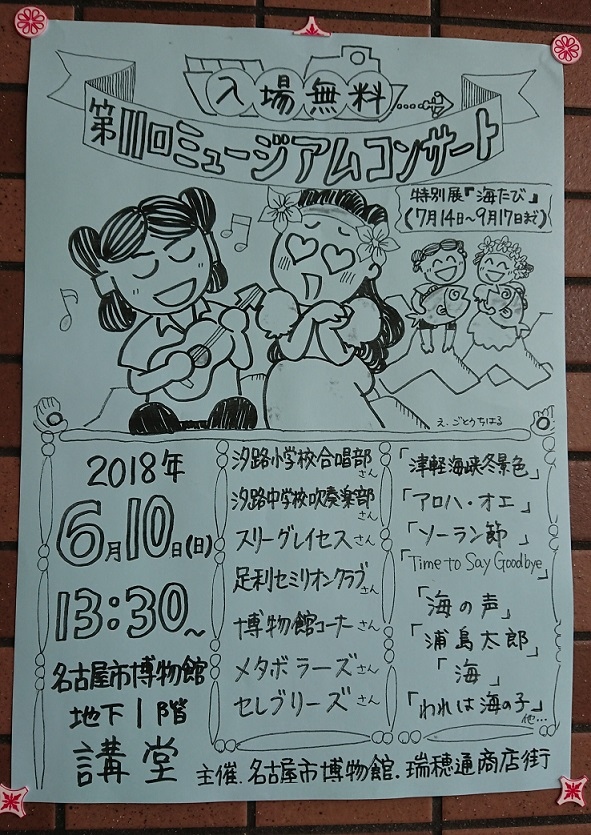 入場無料
第111回ミュージアムコンサート
特別展『海たび』
(7月14日~9月17日まで)
え.ごとうちはる
2018年
6月10日(日)
13:30~
名古屋市博物館
地下1階
講堂
汐路小学校合唱部さん
汐路中学校吹奏楽部さん
スリーグレイセスさん
足利セミリオンクラブさん
博物館コーナーさん
メタボラーズさん
セレブリーズさん
「津軽海峡冬景色」
「アロハ・オエ」
「ソーラン節」
「Time to Say Goodbye」
「海の声」
「浦島太郎」
「海」
「われは海の子」他…
主催.名古屋市博物館.瑞穂通商店街